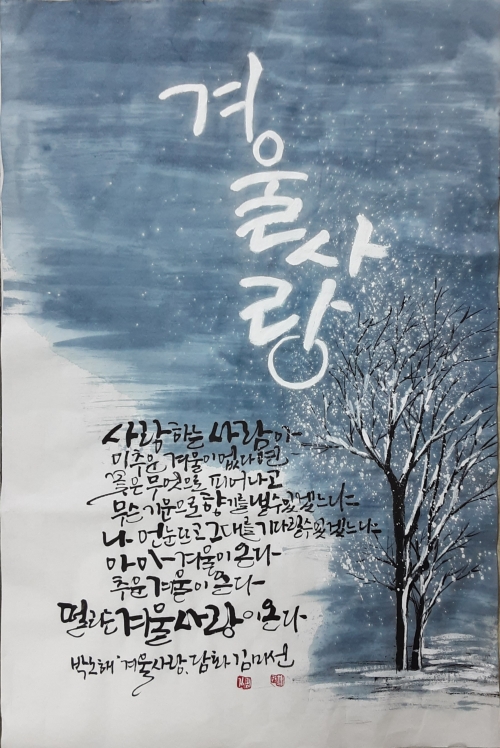 겨울사랑
사랑하는 사람아
이 추운 겨울이 없다면
꽃은 무엇으로 피어나고
무슨 기운으로 향기를 낼 수 있겠느냐
나 언 눈 뜨고 그대를 기다릴 수 있겠느냐
아아 겨울이 온다
추운 겨울이 온다
떨리는 겨울사랑이 온다
박노해 '겨울사랑, 담화 김미선